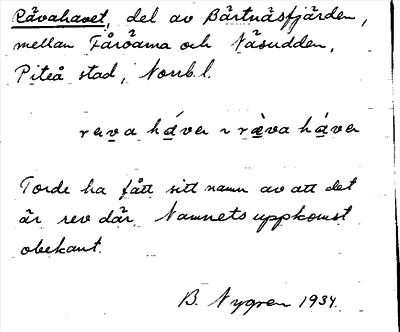 Rävahavet, del av Bärtnäsfjärden,
mellan Fåröarna och Näsudden,
Piteå stad, Norrb. l.
reva háver ~ rèva háver
Torde ha fått sitt namn av att det
är rev där. Namnets uppkomst
obekant.
B. Nygren 1934.